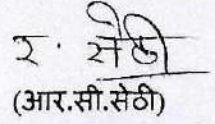 र. सेठी
(आर.सी.सेठी)